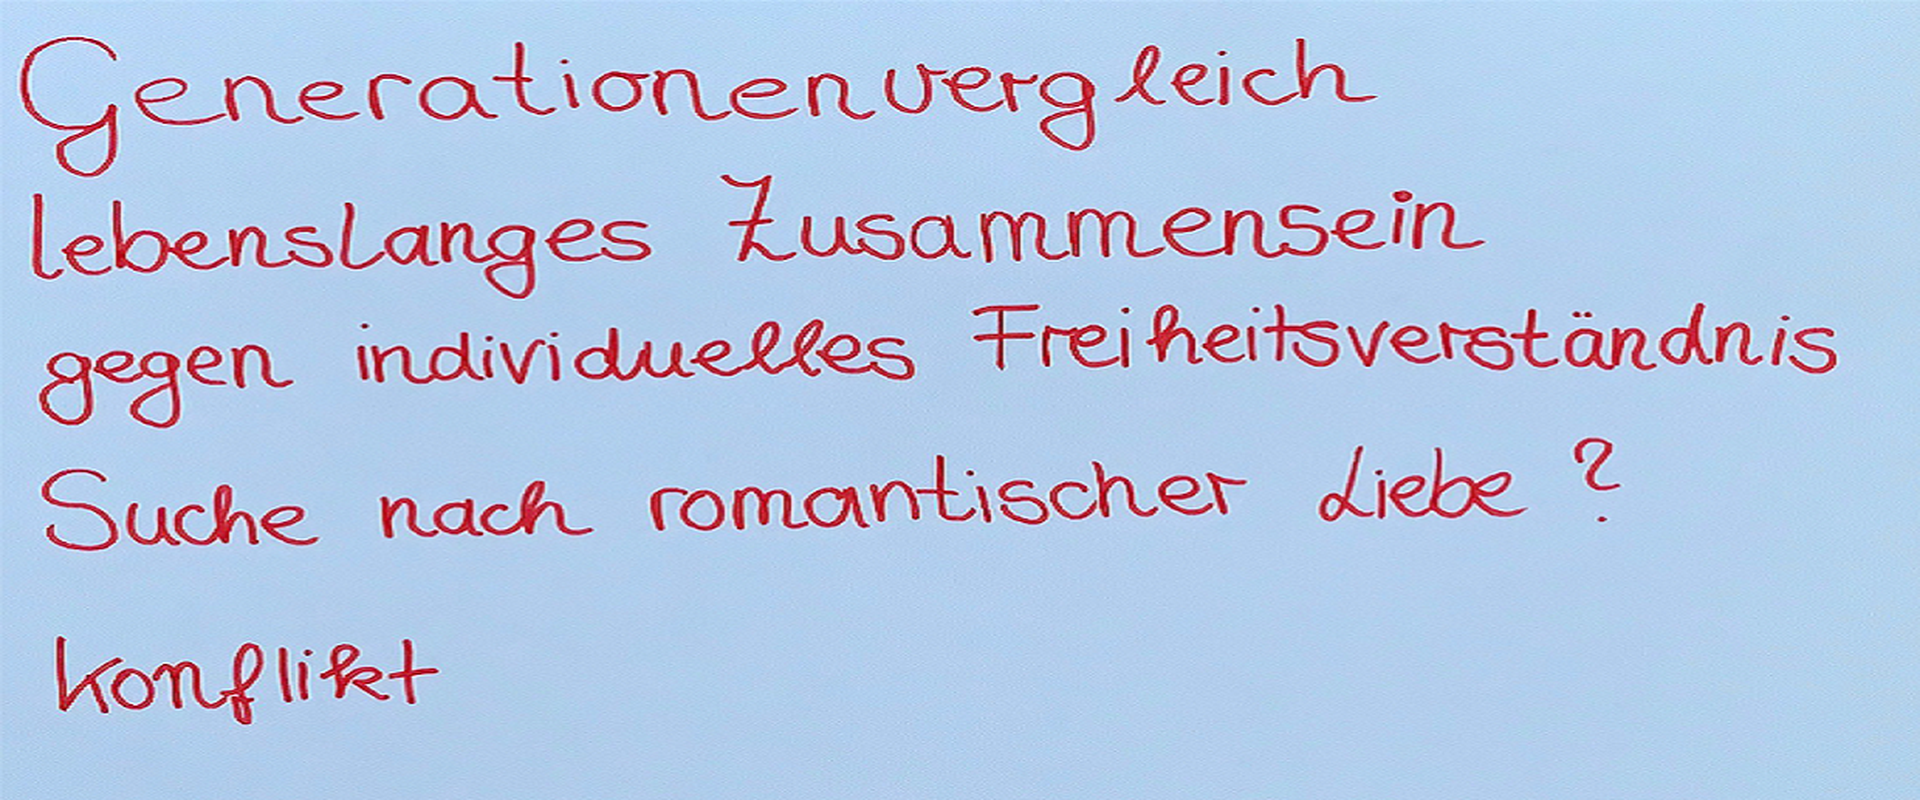 Generationenvergleich
lebenslanges Zusammensein
gegen individuelles Freiheitsverständnis
Suche nach romantischer Liebe ?
Konflikt